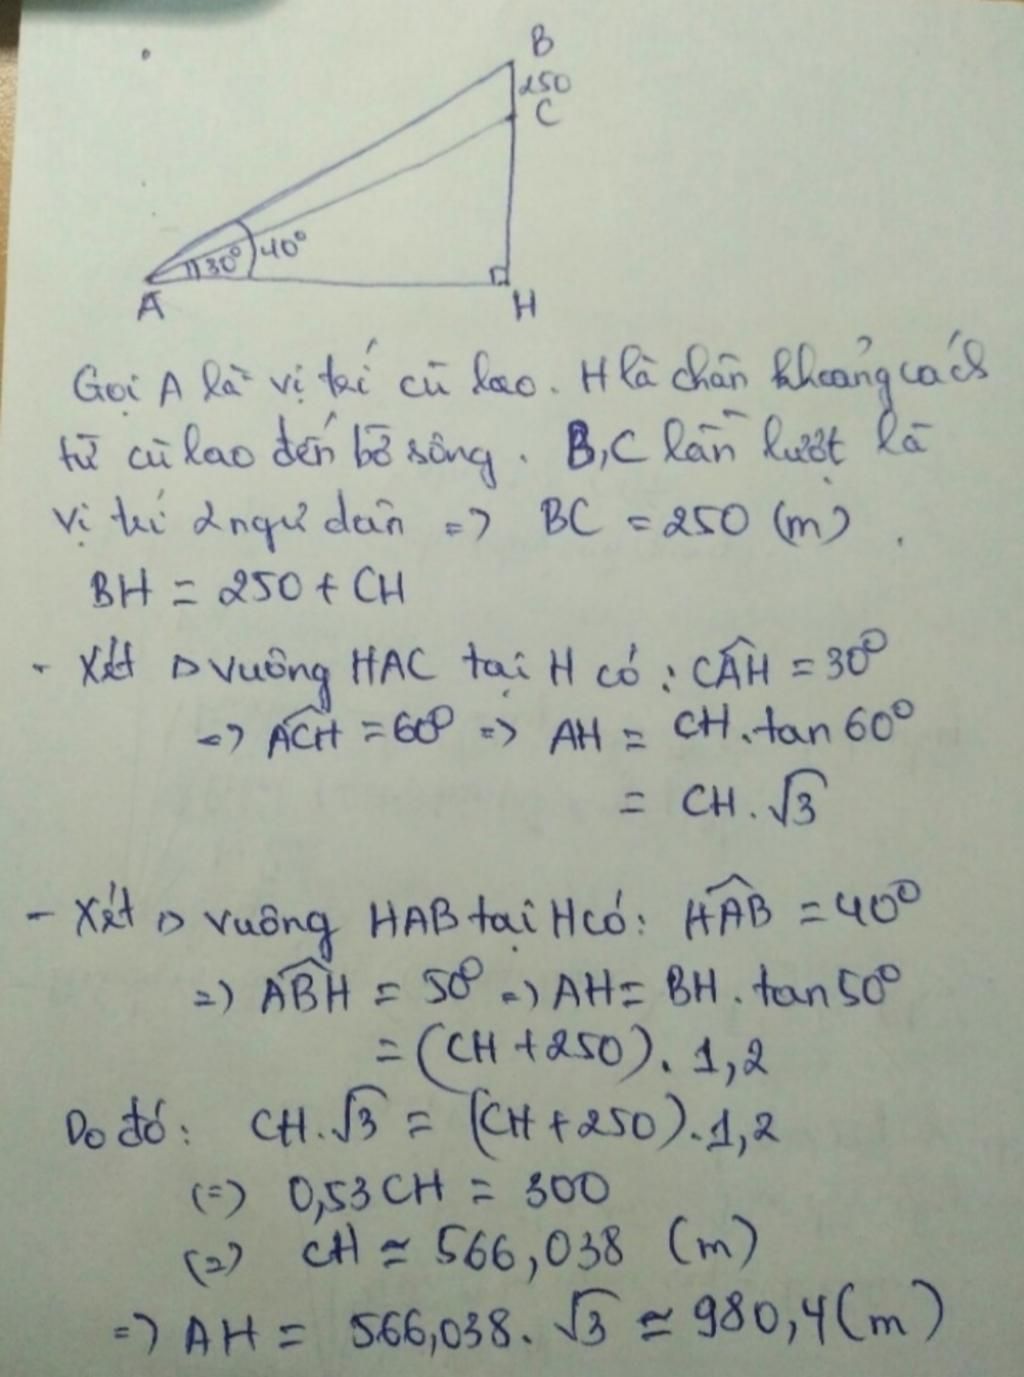 B
250
C
30° 40°
A
H
Gọi A là vị trí cù lao. H là chân khoảng cách
từ cù lao đến bờ sông. B,C lần lượt là
vị trí 2 ngư dân => BC = 250 (m).
BH = 250 + CH
- Xét ▷ vuông HAC tại H có: CÂH = 30°
=> ACH = 60° => AH = CH.tan 60°
= CH.√3
- Xét ▷ vuông HAB tại H có: HÂB = 40°
=> ABH = 50° => AH = BH.tan50°
= (CH + 250).1,2
Do đó: CH.√3 = (CH + 250).1,2
(=) 0,53CH = 300
(=) CH ≃ 566,038 (m)
=> AH = 566,038.√3 ≃ 980,4(m)